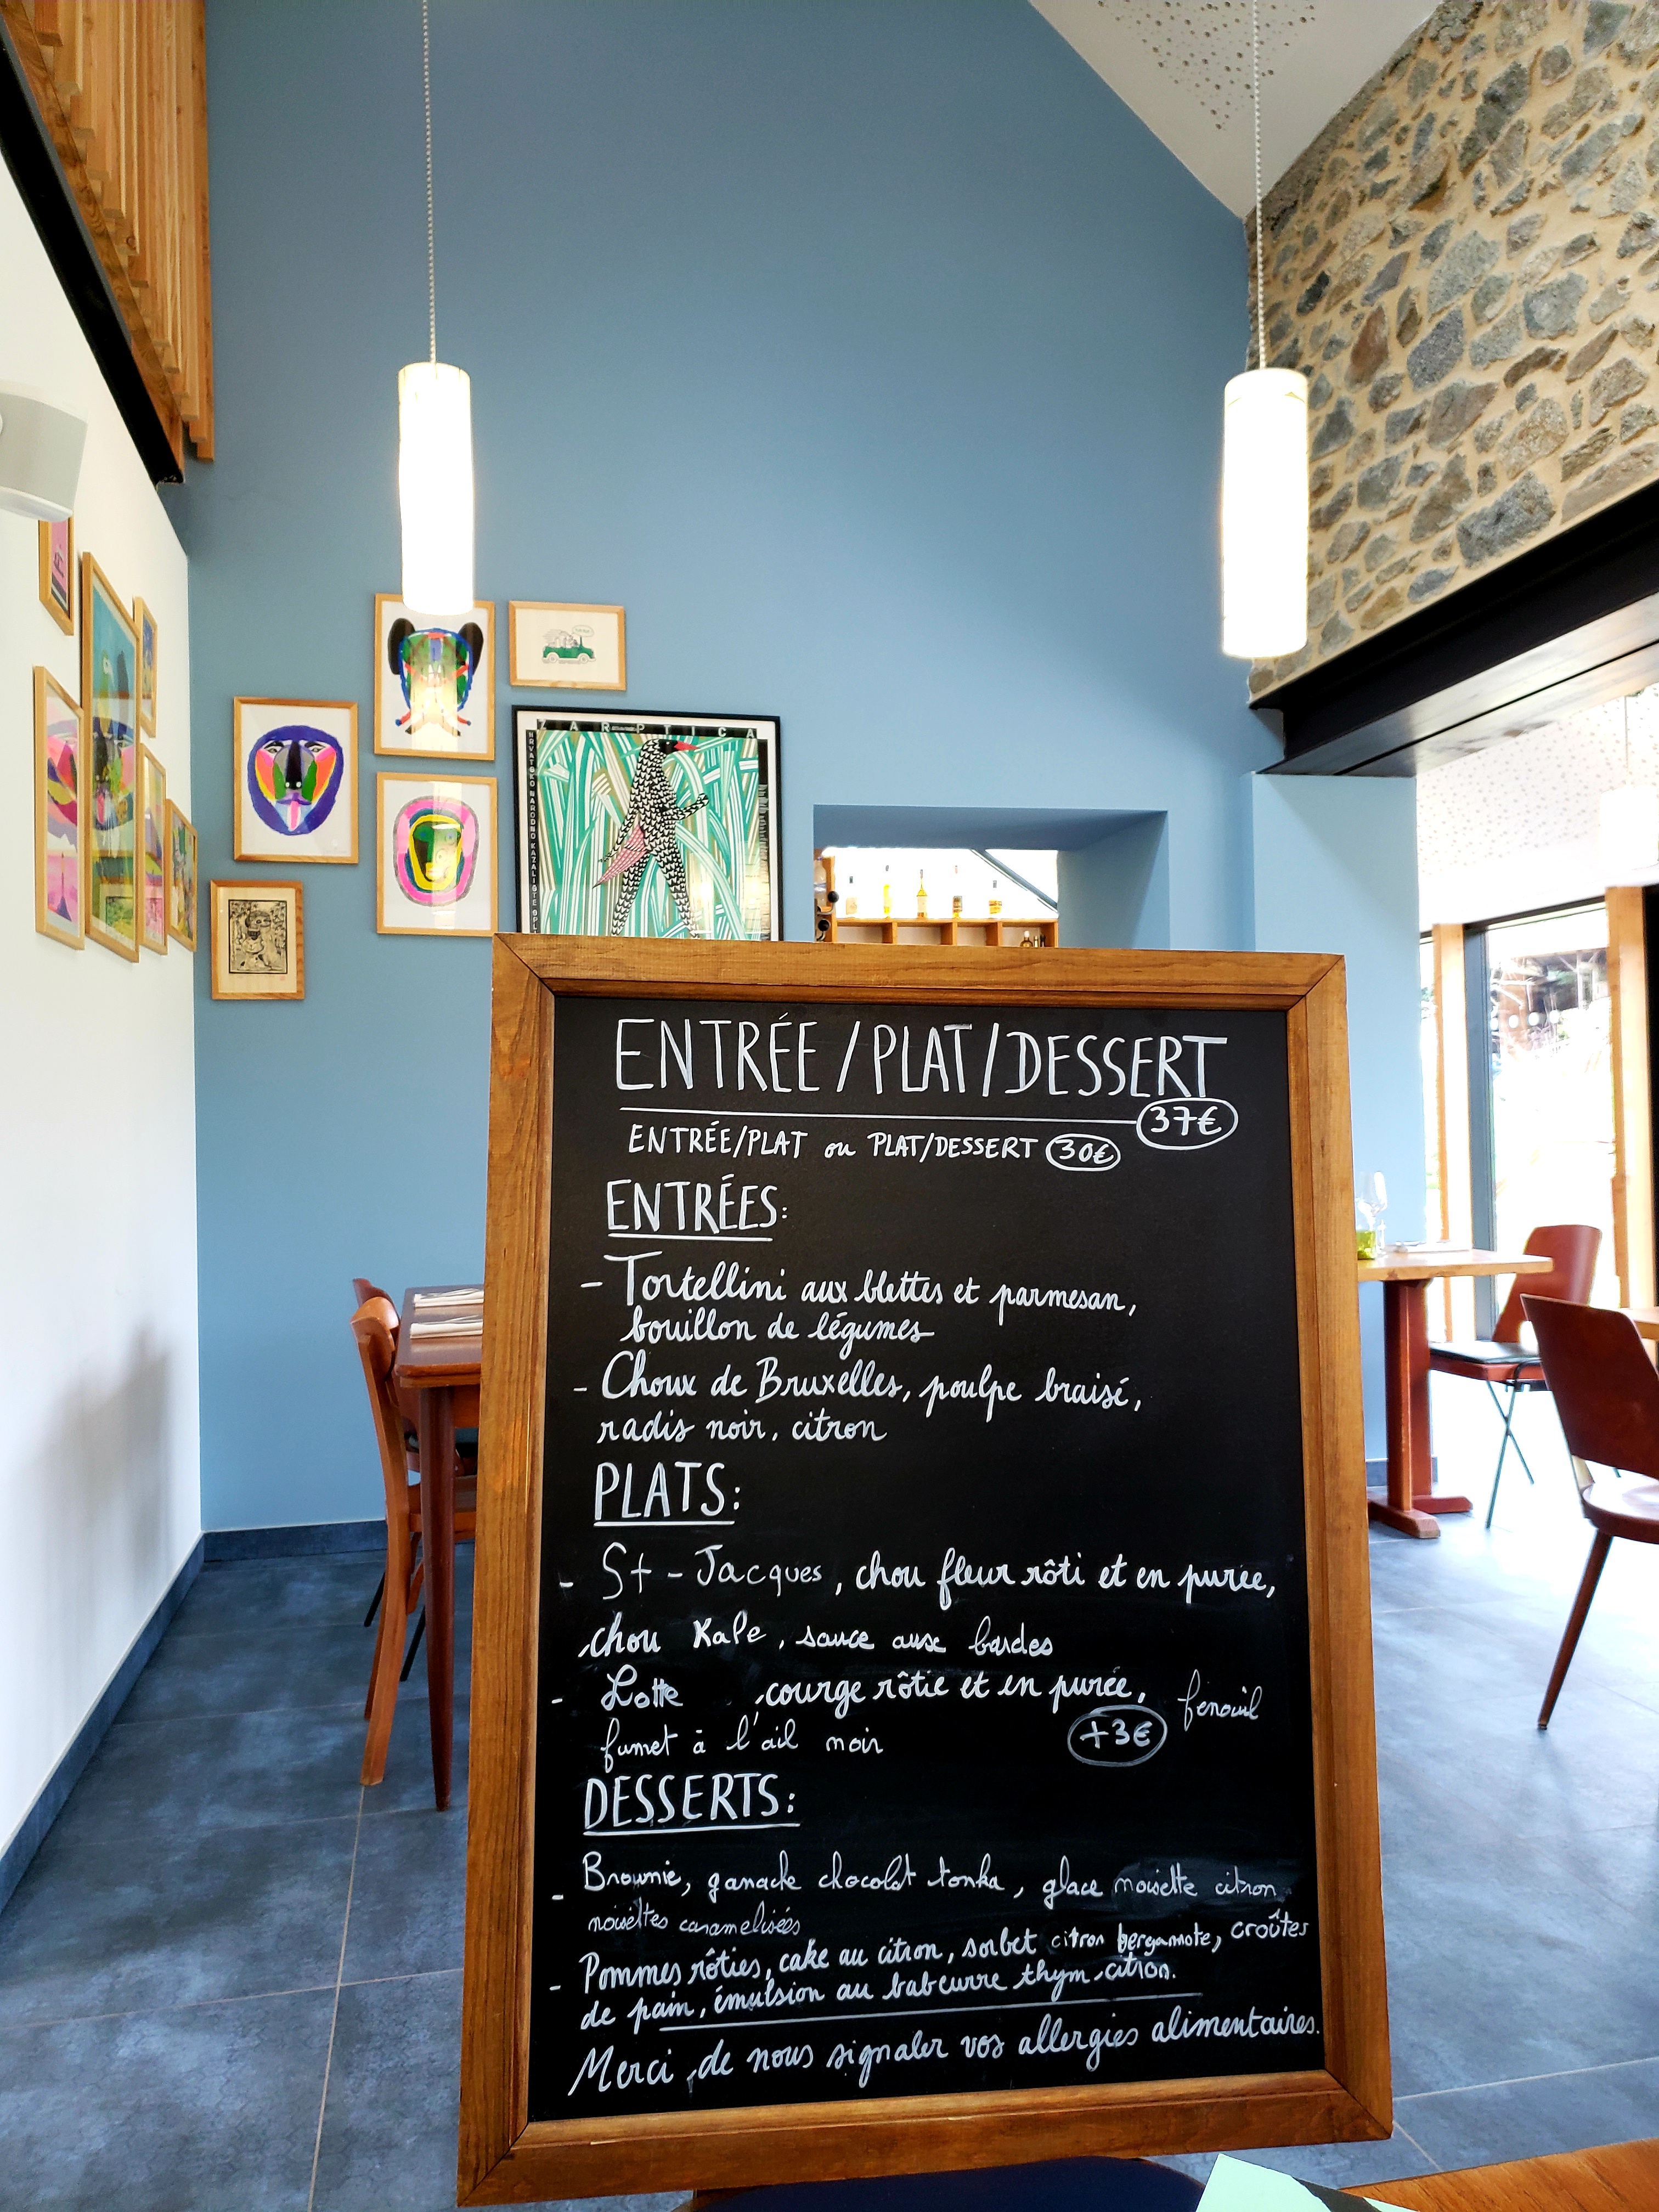 ZARPTICA
HRVATSKO NARODNO KAZALIŠTE SPL
ENTRÉE/PLAT/DESSERT
37€
ENTRÉE/PLAT ou PLAT/DESSERT 30€
ENTRÉES:
- Tortellini aux blettes et parmesan,
bouillon de légumes
- Choux de Bruxelles, poulpe braisé,
radis noir, citron
PLATS:
- St-Jacques, chou fleur rôti et en purée,
chou Kale, sauce aux bardes
- Lotte, courge rôtie et en purée, fenouil
fumet à l'ail noir +3€
DESSERTS:
- Brownie, ganache chocolat tonka, glace noisette citron
noisettes caramelisées
- Pommes rôties, cake au citron, sorbet citron bergamote, croûtes
de pain, émulsion au babeurre thym citron.
Merci de nous signaler vos allergies alimentaires.